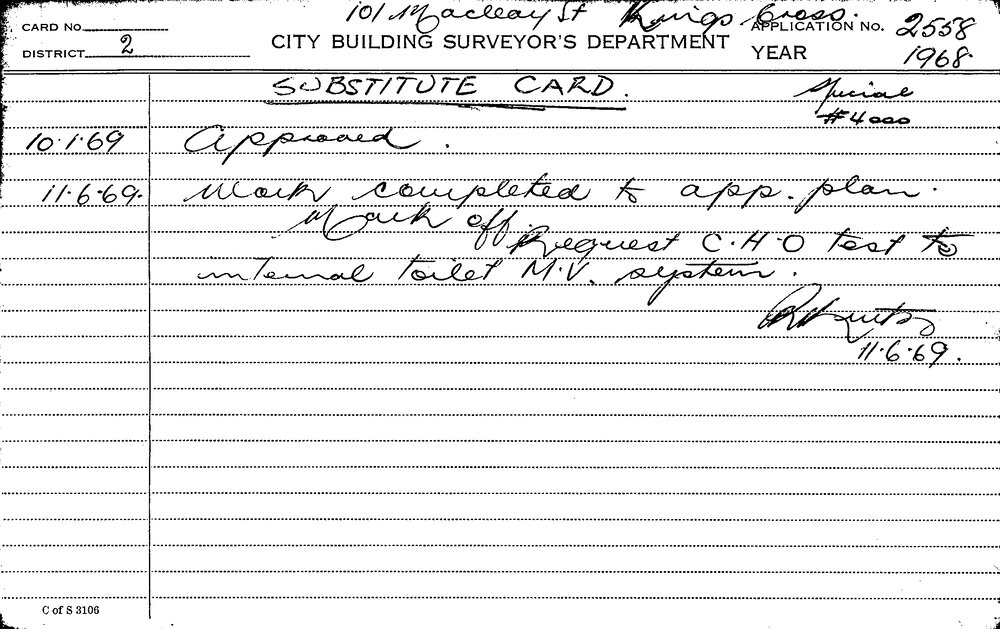 101 Macleay St Kings Cross.
CARD NO.
APPLICATION NO. 2558
DISTRICT 2
CITY BUILDING SURVEYOR'S DEPARTMENT
YEAR 1968
SUBSTITUTE CARD.
Special
#4000
10.1.69 Approved.
11.6.69. Work completed to app. plan.
Mark off Request C.H.O test to
internal toilet M.V. system.
11.6.69.
C of S 3106